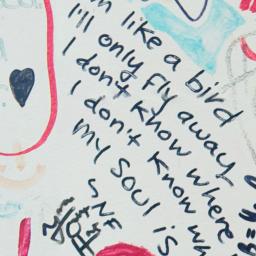 like a bird
I'll only fly away
I don't know where
I don't know
my soul is
SNF